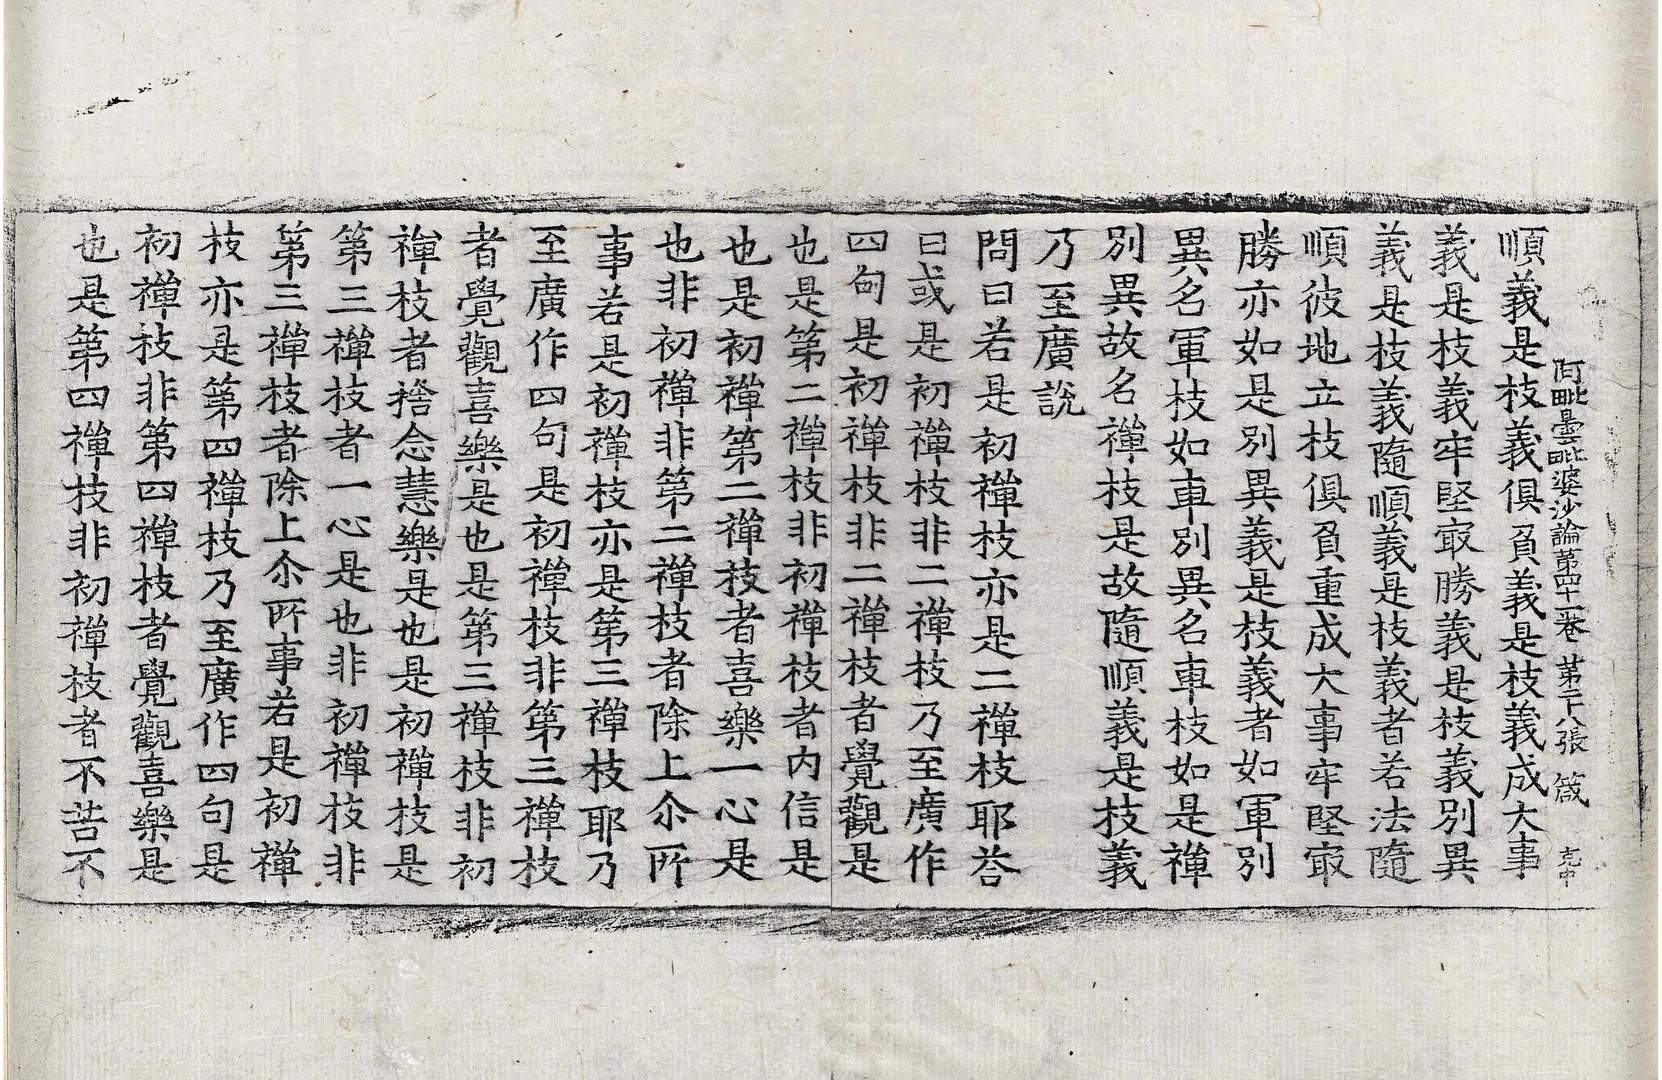 阿毗曇毗婆沙論第四十一卷 第二十八張 箴 克中
順義是枝義俱負義是枝義成大事
義是枝義牢堅㝡勝義是枝義別異
義是枝義隨順義是枝義者若法隨
順彼地立枝俱負重成大事牢堅㝡
勝亦如是別異義是枝義者如軍別
異名軍枝如車別異名車枝如是禪
別異故名禪枝是故隨順義是枝義
乃至廣說
問曰若是初禪枝亦是二禪枝耶荅
曰或是初禪枝非二禪枝乃至廣作
四句是初禪枝非二禪枝者覺觀是
也是第二禪枝非初禪枝者內信是
也是初禪第二禪枝者喜樂一心是
也非初禪非第二禪枝者除上尒所
事若是初禪枝亦是第三禪枝耶乃
至廣作四句是初禪枝非第三禪枝
者覺觀喜樂是也是第三禪枝非初
禪枝者捨念慧樂是也是初禪枝是
第三禪枝者一心是也非初禪枝非
第三禪枝者除上尒所事若是初禪
枝亦是第四禪枝乃至廣作四句是
初禪枝非第四禪枝者覺觀喜樂是
也是第四禪枝非初禪枝者不苦不